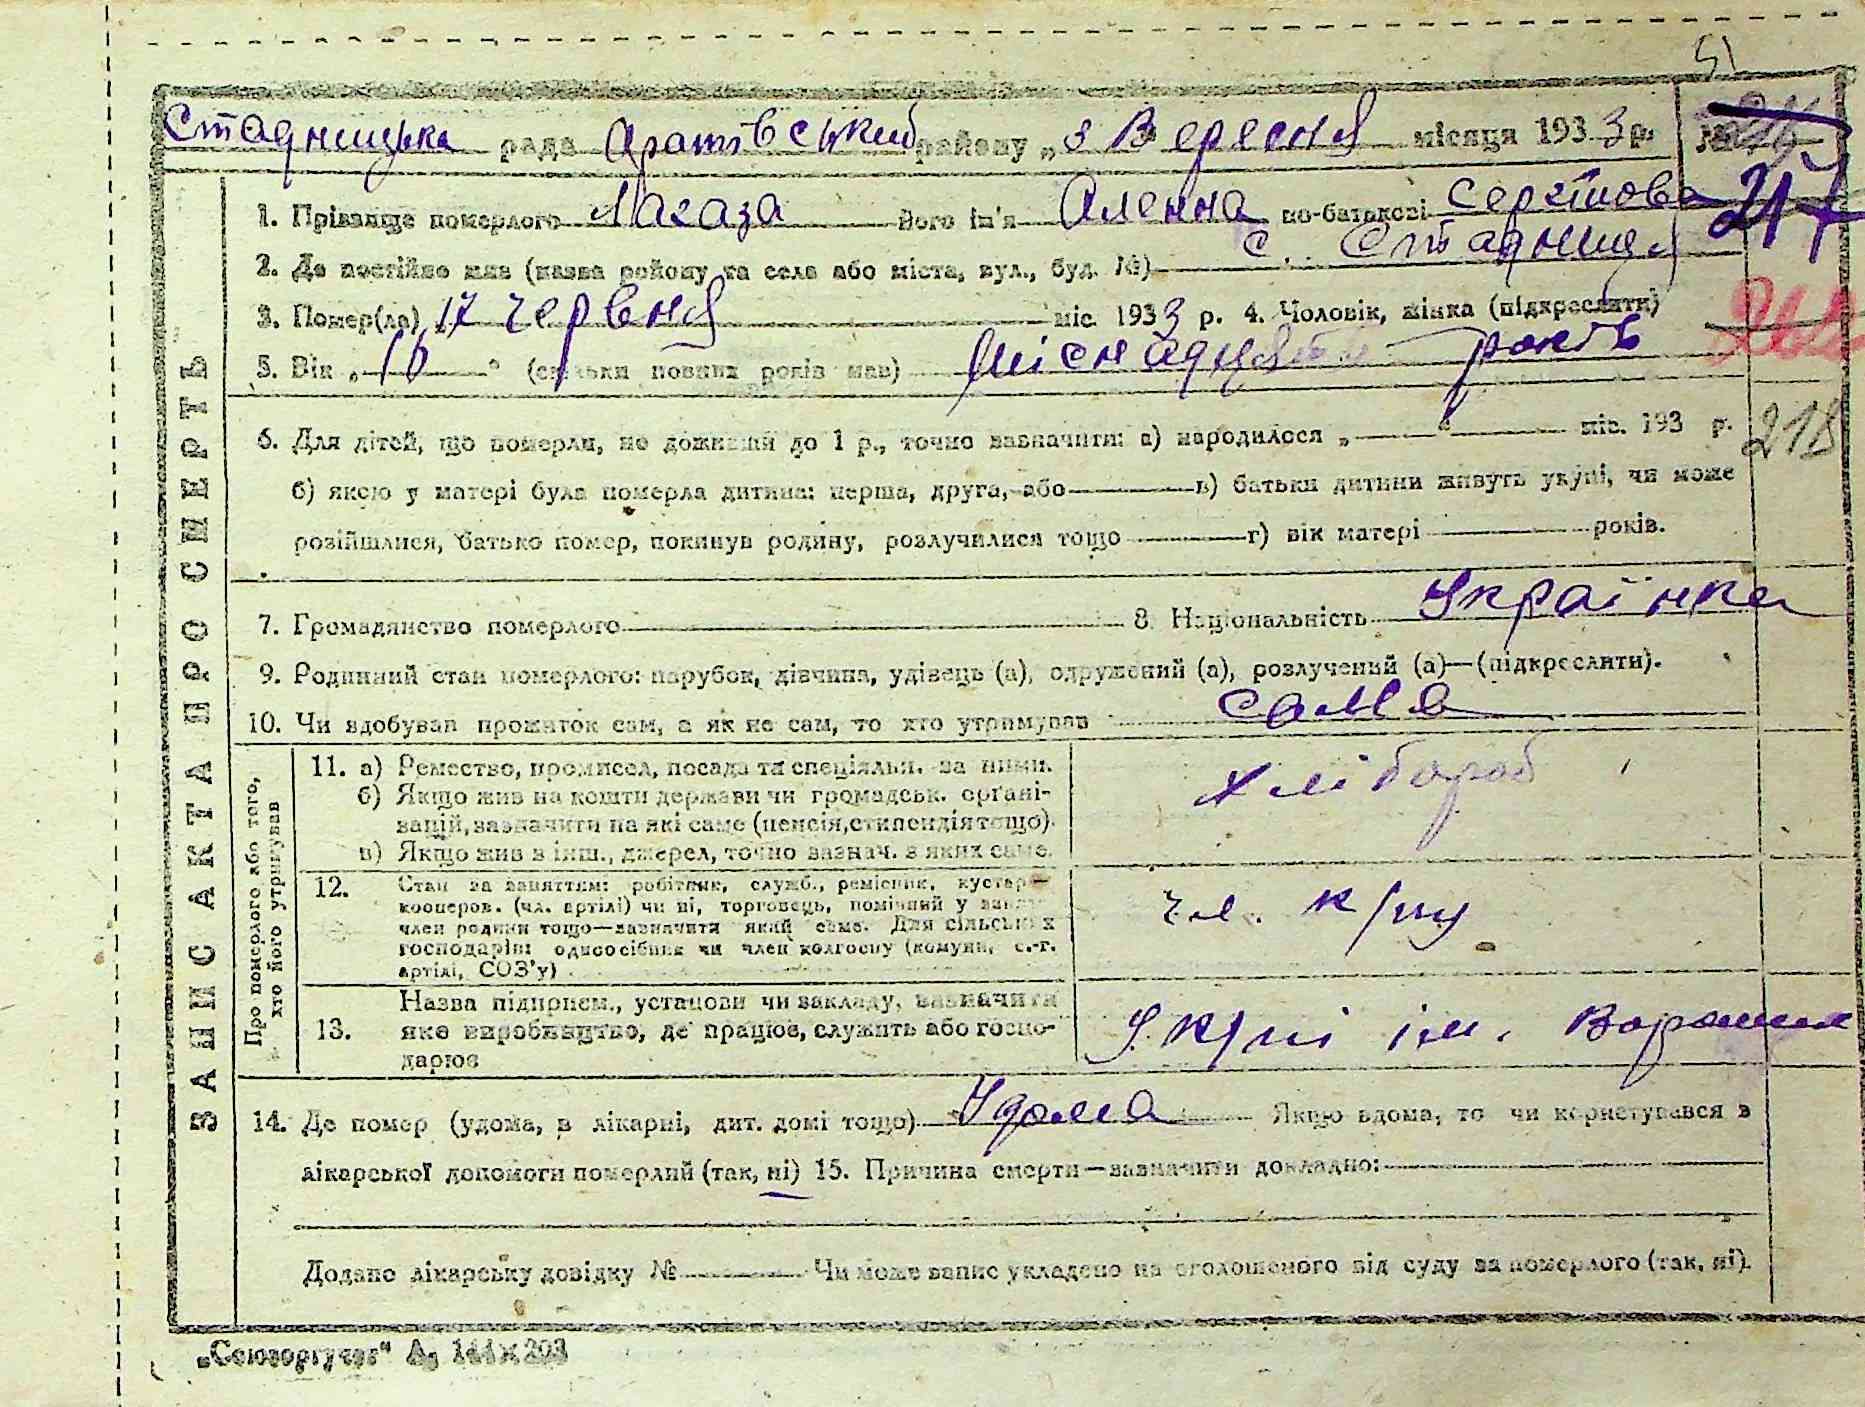 51
Стадницька рада Тетіївський району „3 Вересня місяця 1933 р. №
217
1. Прізвище померлого Лагаза його ім'я Олена по-батькові Сергіїова
2. Де постійно жив (назва району та села або міста, вул., буд. №) с. Стадниця
3. Помер(ла) „17 червня міс. 1933 р. 4. Чоловік, жінка (підкреслити)
5. Вік „16" (скільки повних років мав) Шіснадцять років
218
6. Для дітей, що померли, не доживши до 1 р., точно зазначити: а) народилося „ " міс. 193 р.
б) якою у матері була померла дитина: перша, друга, або в) батьки дитини живуть укупі, чи може
розійшлися, батько помер, покинув родину, розлучилися тощо г) вік матері років.
7. Громадянство померлого 8. Національність Українка
9. Родинний стан померлого: парубок, дівчина, удівець (а), одружений (а), розлучений (а)—(підкреслити).
10. Чи здобував прожиток сам, а як не сам, то хто утримував сама
ЗАПИС АКТА ПРО СМЕРТЬ
Про померлого або того, хто його утримував
11. а) Ремество, промисел, посада та спеціяльн. за ними.
б) Якщо жив на кошти держави чи громадськ. органі-
зацій, зазначити на які саме (пенсія, стипендія тощо).
в) Якщо жив з інш., джерел, точно зазнач. з яких саме.
хлібороб
12. Стан за заняттям: робітник, служб., ремісник, кустар—
кооперов. (чл. артілі) чи ні, торговець, помічний у
член родини тощо—зазначити який саме. Для сільських
господарів: одноосібник чи член колгоспу (комуни, с.-г.
артілі, СОЗ'у)
чл. к/гпу
13. Назва підприєм., установи чи закладу, зазначити
яке виробництво, де працює, служить або госпо-
дарює
У к/гпі ім. Ворошил
14. Де помер (удома, в лікарні, дит. домі тощо) Удома Якщо вдома, то чи користувався з
лікарської допомоги померлий (так, ні) 15. Причина смерти—зазначити докладно:
Додано лікарську довідку № Чи може запис укладено на оголошеного від суду за померлого (так, ні).
„Союзоргучет" А5 144×203